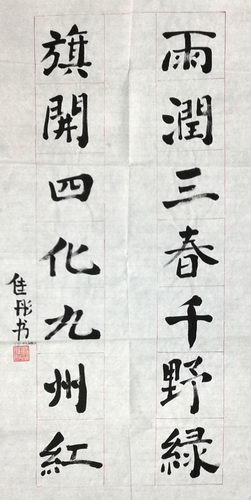 雨潤三春千野緑
旗開四化九州紅
佳彤书